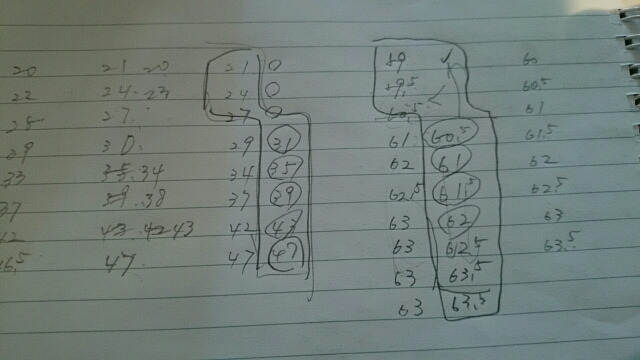 20 21 20 21 0 59 ✓ 60
22 24 23 24 0 59,5 < 60,5
25 27 27 0 60,5 61
29 30 29 31 61 60,5 61,5
33 35 34 34 35 62 61 62
37 39 38 37 39 62,5 61,5 62,5
42 43 42 43 42 43 63 62 63
46,5 47 47 47 63 62,5 63,5
63 63,5
63 63,5